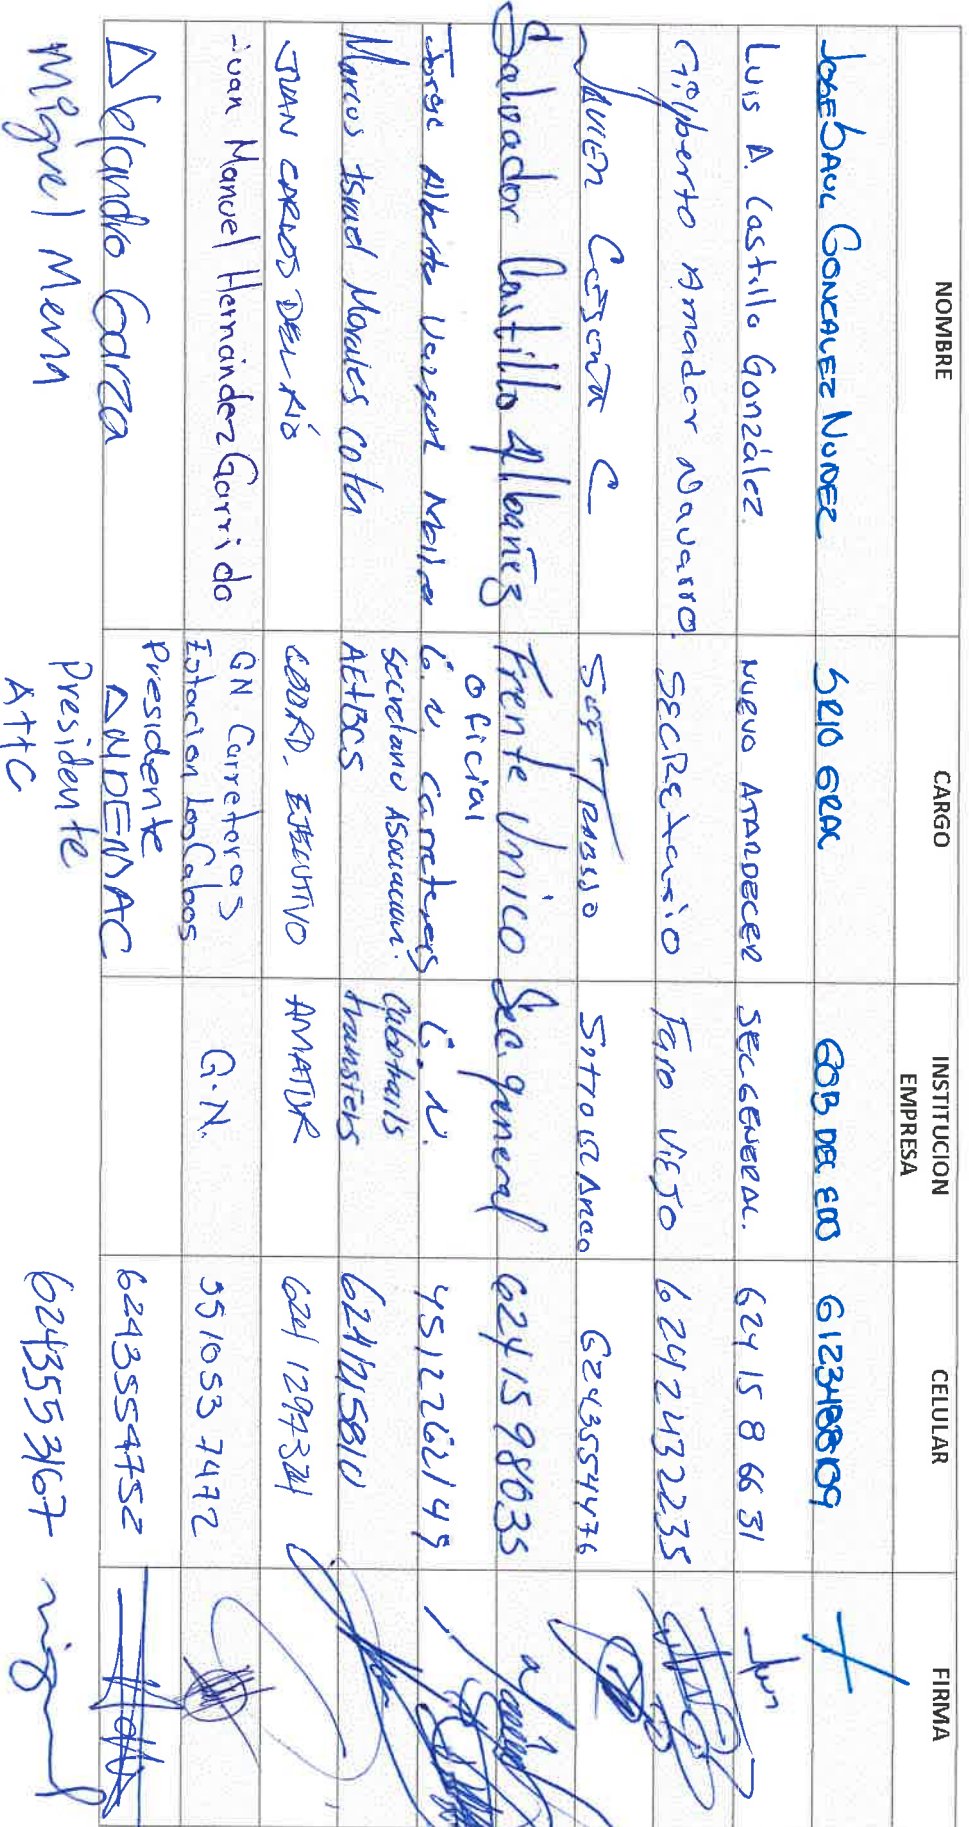 NOMBRE CARGO INSTITUCION EMPRESA CELULAR FIRMA
JOSE SAUL GONCALEZ NUÑEZ SRIO GRAL GOB DEL EDO
Luis A. Castillo González. NUEVO ATARDECER SEC GENERAL. 624 15 8 66 31
Gilberto Amador Navarro. SECRETARIO FARO VIEJO 6242432235
JAVIER C 6243554476
Salvador Castillo Albañez Frente Unico Sec. general 6241598035
oficial
Jorge Alberto G. N. Carreteras G. N. 4512262149
Marcos Ismael Morales Cota Secretario Asociacion. AETBCS Cabotrails transfers 6241215810
JUAN CARLOS DEL RIO COORD. EJECUTIVO AMATUR
Juan Manuel Hernández Garrido GN. Carreteras Estacion Los Cabos G.N. 5510537472
Alejandro Garza Presidente ANDEMAC 6243554752
Miguel Mena Presidente ATTC 6243553167